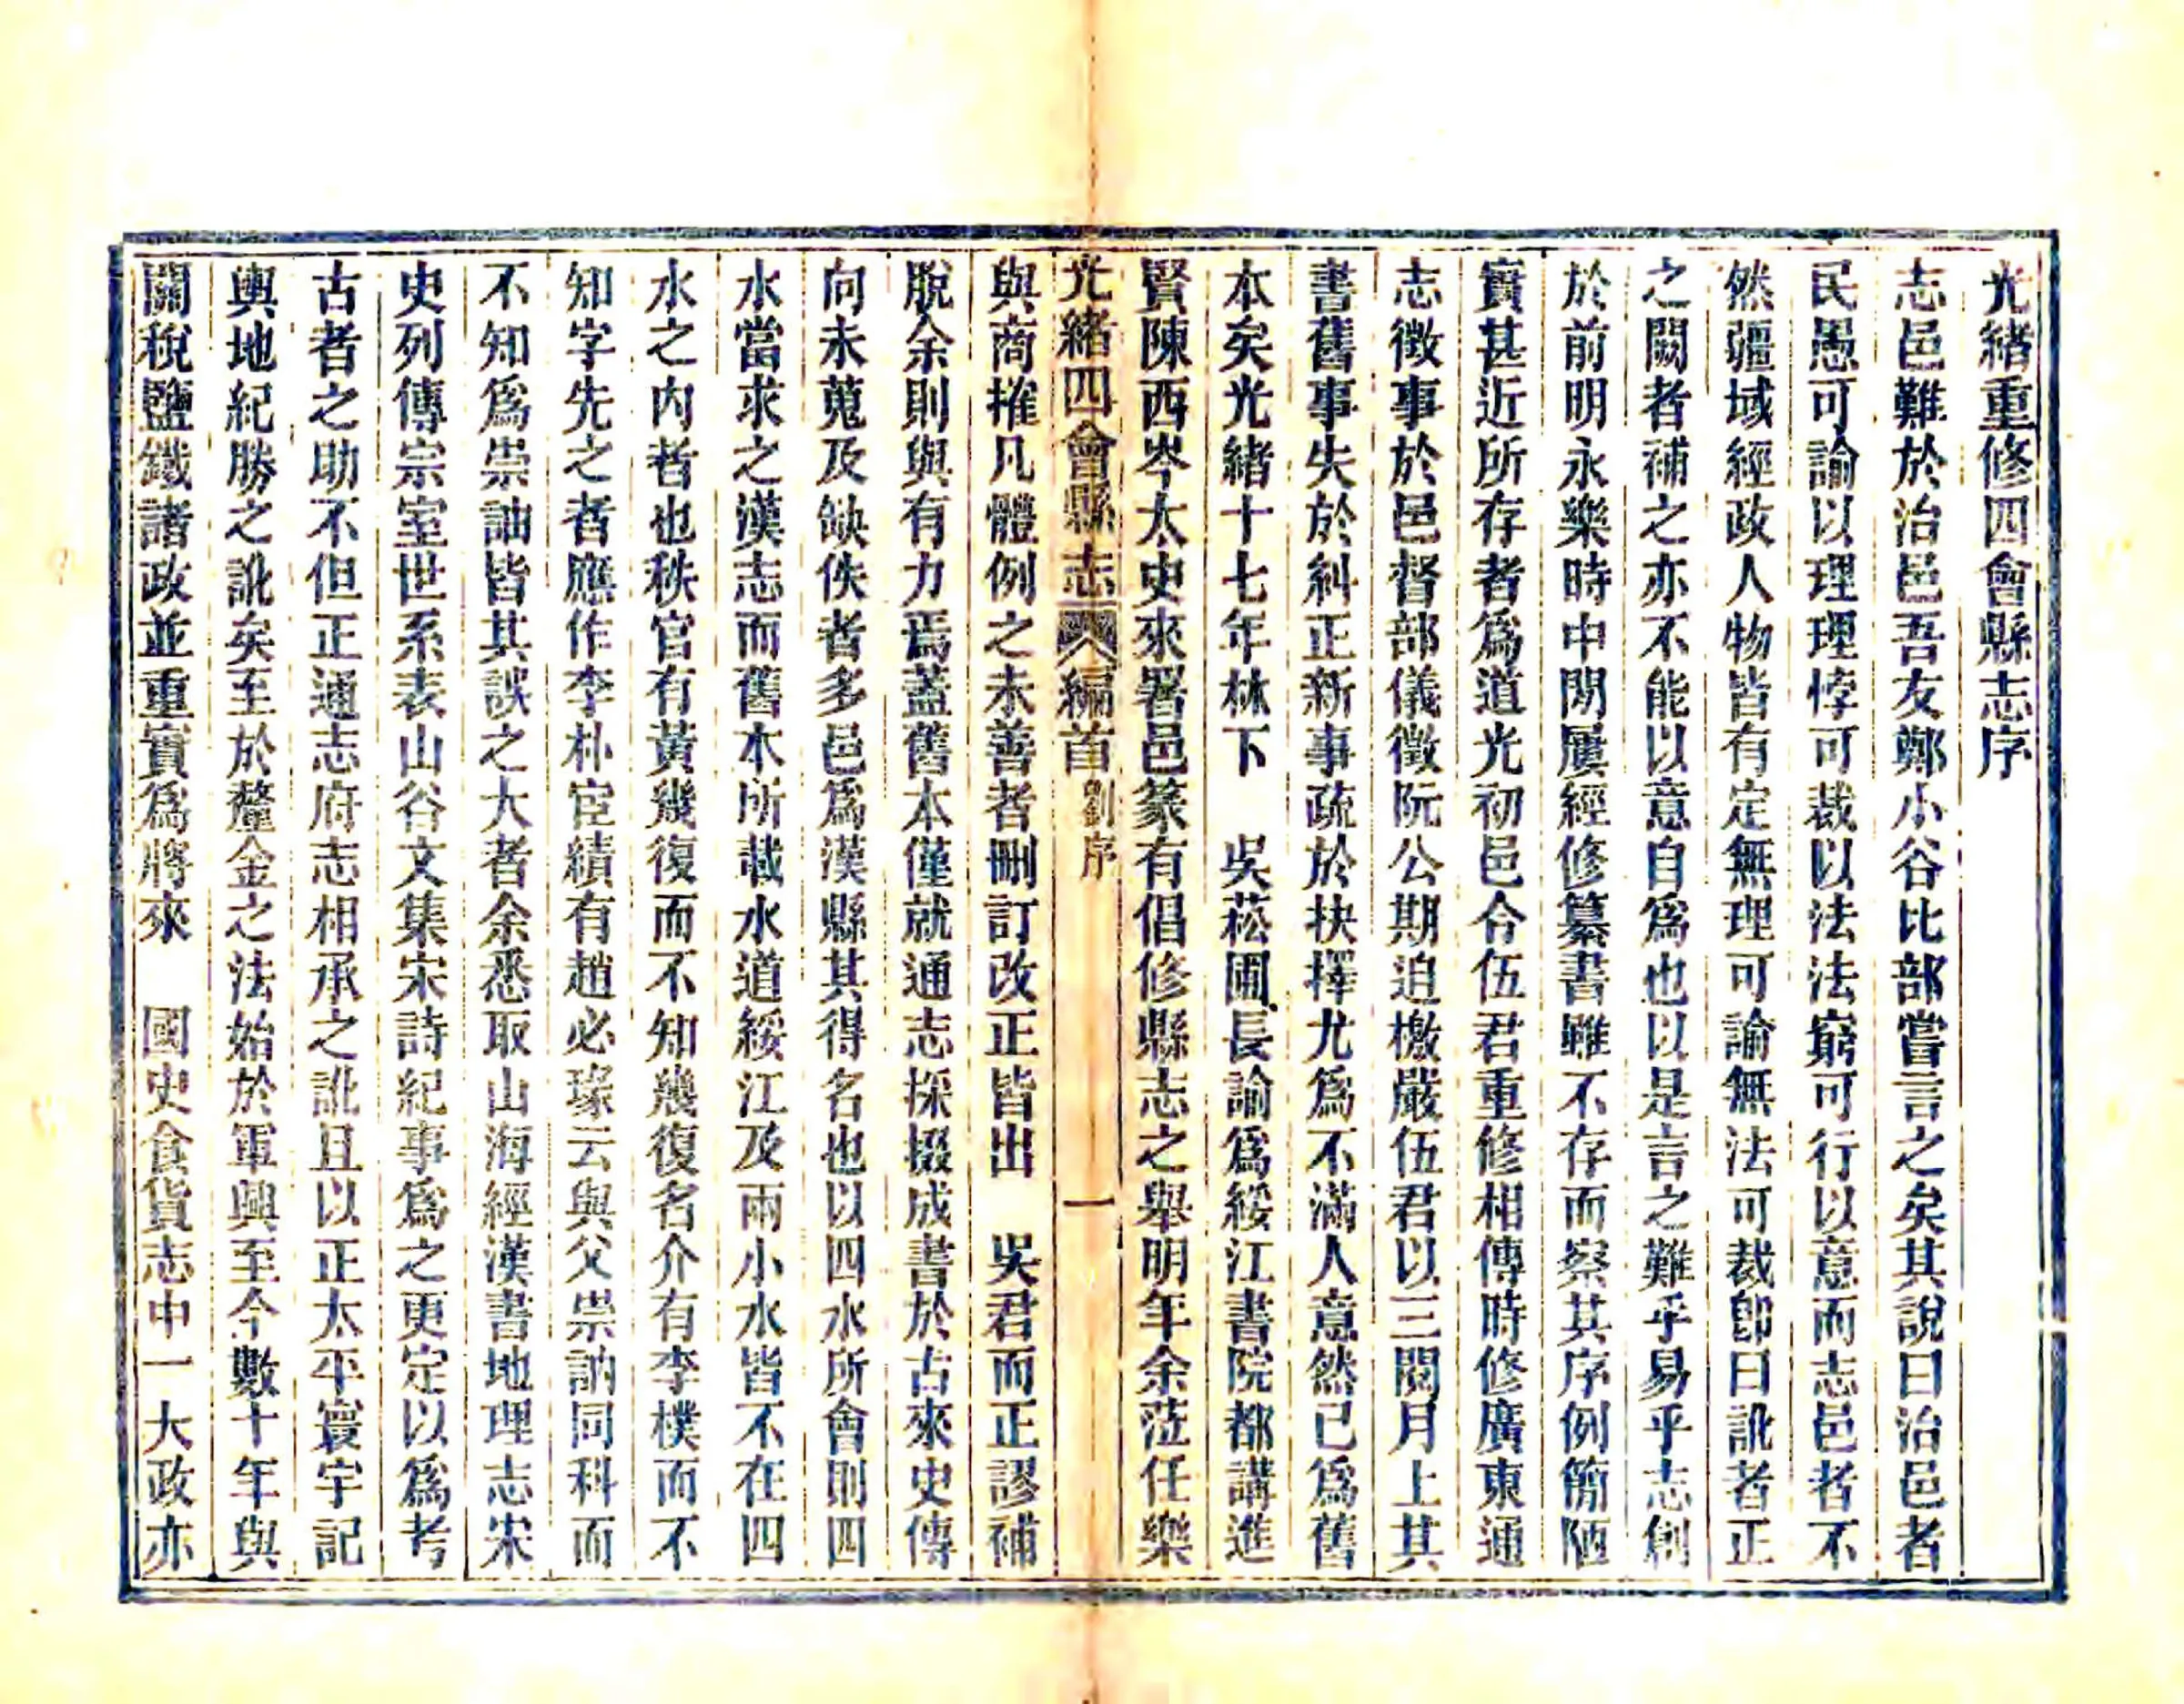 光緒重修四會縣志序
志邑難於治邑吾友鄭小谷比部嘗言之矣其說曰治邑者
民愚可諭以理理悖可裁以法法窮可行以意而志邑者不
然疆域經政人物皆有定無理可諭無法可裁卽曰訛者正
之闕者補之亦不能以意自爲也以是言之難乎易乎志創
於前明永樂時中閒屢經修纂書雖不存而察其序例簡陋
實甚近所存者爲道光初邑合伍君重修相傳時修廣東通
志徵事於邑督部儀徵阮公期迫檄嚴伍君以三閱月上其
書舊事失於糾正新事疏於抉擇尤爲不滿人意然已爲舊
本矣光緒十七年林下　吳菘圃長諭爲綏江書院都講進
賢陳西岑太史來署邑篆有倡修縣志之舉明年余蒞任樂
光緒四會縣志　編首劉序　一
與商搉凡體例之未善者刪訂改正皆出　吳君而正謬補
脫余則與有力焉蓋舊本僅就通志採掇成書於古來史傳
向未蒐及缺佚者多邑爲漢縣其得名也以四水所會則四
水當求之漢志而舊木所載水道綏江及兩小水皆不在四
水之內者也秩官有黃幾復而不知幾復名介有李樸而不
知字先之者應作李朴宦績有趙必瑑云與父崇訥同科而
不知爲崇詘皆其誤之大者余悉取山海經漢書地理志宋
史列傳宗室世系表山谷文集宋詩紀事爲之更定以爲考
古者之助不但正通志府志相承之訛且以正太平寰宇記
輿地紀勝之訛矣至於釐金之法始於軍興至今數十年與
關稅鹽鐵諸政並重實爲將來　國史食貨志中一大政亦